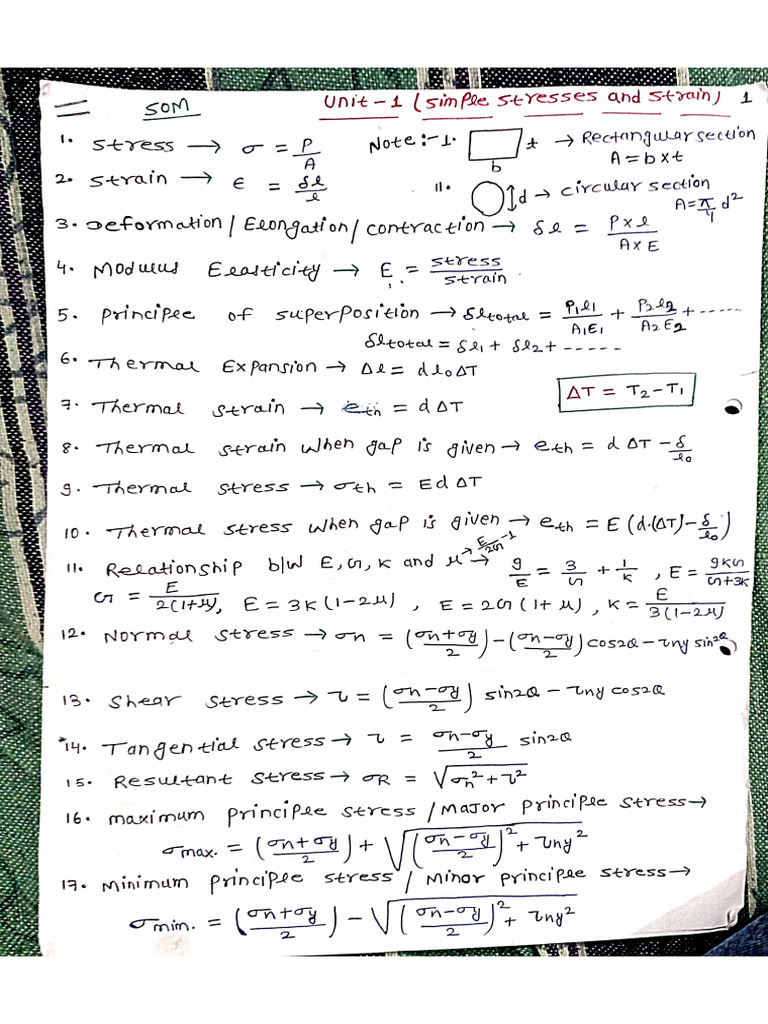 SOM Unit-1 (simple stresses and strain) 1
1. stress → σ = P/A Note:-1. t → Rectangular section
b A = b x t
2. strain → ϵ = δl/l 11. d → circular section
A = π/4 d²
3. Deformation / Elongation / contraction → δl = P x l / A x E
4. Modulus Elasticity → E = stress/strain
5. principle of superposition → δl total = P₁l₁/A₁E₁ + P₂l₂/A₂E₂ + -----
δl total = δl₁ + δl₂ + -----
6. Thermal Expansion → Δl = αl₀ΔT
ΔT = T₂ - T₁
7. Thermal strain → eth = αΔT
8. Thermal strain when gap is given → eth = αΔT - δ/l₀
9. Thermal stress → σth = EαΔT
10. Thermal stress when gap is given → eth = E(α.(ΔT) - δ/l₀)
11. Relationship b/w E, G, K and μ → E/2G - 1 → 9/E = 3/G + 1/K, E = 9KG/G+3K
G = E/2(1+μ), E = 3K(1-2μ), E = 2G(1+μ), K = E/3(1-2μ)
12. Normal stress → σn = (σn+σy/2) - (σn-σy/2) cos2θ - τny sin2θ
13. Shear stress → τ = (σn-σy/2) sin2θ - τny cos2θ
*14. Tangential stress → τ = σn-σy/2 sin2θ
15. Resultant stress → σR = √σn²+τ²
16. maximum principle stress / Major principle stress →
σmax. = (σn+σy/2) + √(σn-σy/2)² + τny²
17. Minimum principle stress / Minor principle stress →
σmin. = (σn+σy/2) - √(σn-σy/2)² + τny²